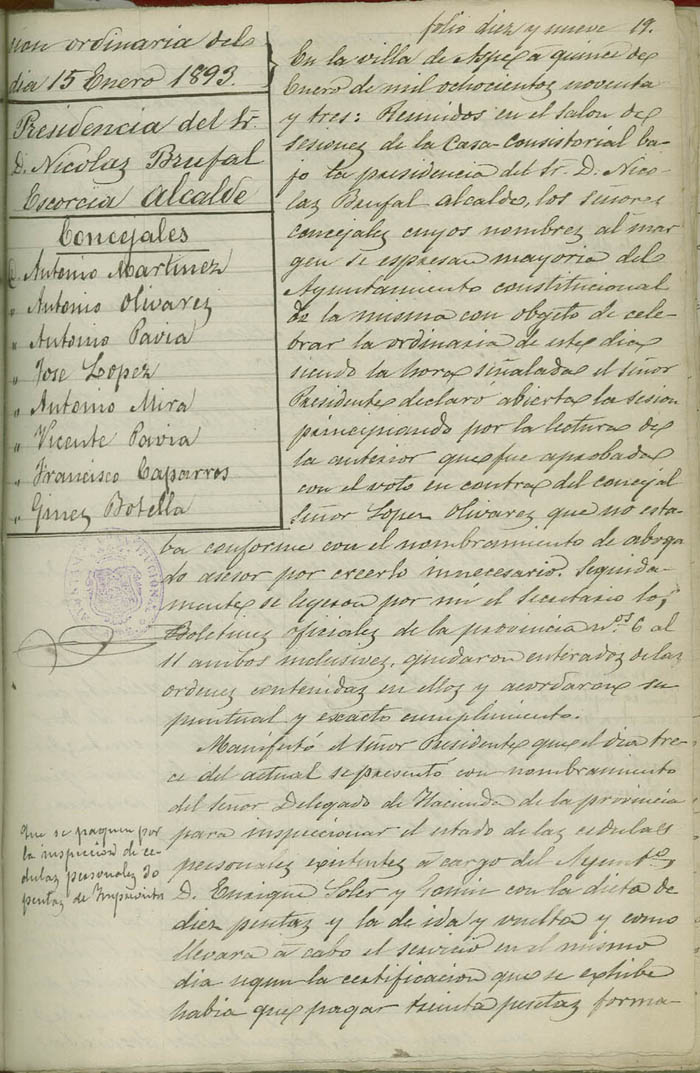 folio diez y nueve 19.
sion ordinaria del
dia 15 Enero 1893.
Presidencia del Sr.
D. Nicolaz Brufal
Escorcia Alcalde
Concejales
D. Antonio Martinez
" Antonio Olivarez
" Antonio Pavia
" Jose Lopez
" Antonio Mira
" Vicente Pavia
" Francisco Caparros
" Ginez Botella
En la villa de Aspe á quince de
Enero de mil ochocientos noventa
y tres: Reunidos en el salon de
sesionez de la Casa-Consistorial ba-
jo la presidencia del Sr. D. Nico-
laz Brufal Alcalde, los señorez
concejalez cuyos nombrez al mar
gen se espresan mayoria del
Ayuntamiento constitucional
de la misma con objeto de cele-
brar la ordinaria de este dia
siendo la hora señalada el señor
Presidente declaró abierta la sesion
principiando por la lectura de
la anterior que fue aprobada
con el voto en contra del concejal
Señor Lopez Olivarez que no esta-
ba conforme con el nombramiento de aboga
do asesor por creerlo innecesario. Seguida-
mente se leyeron por mi el Secretario los
Boletinez oficialez de la provincia nos. 6 al
11 ambos inclusivez, quedaron enteradoz de laz
ordenez contenidaz en elloz y acordaron su
puntual y exacto cumplimiento.
Manifestó el señor Presidente que el dia tre-
ce del actual se presentó con nombramiento
del señor Delegado de Hacienda de la provincia
para inspeccionar el estado de laz cedulaz
personalez existentez á cargo del Ayunto.
D. Enrique Soler y con la dieta de
diez pesetaz y la de ida y vuelta y como
llevara á cabo el servicio en el mismo
dia segun la certificacion que se exhibe
habia que pagar treinta pesetaz forma-
Que se paguen por
la inspeccion de ce
dulaz personalez 30
pesetaz de Imprevistos